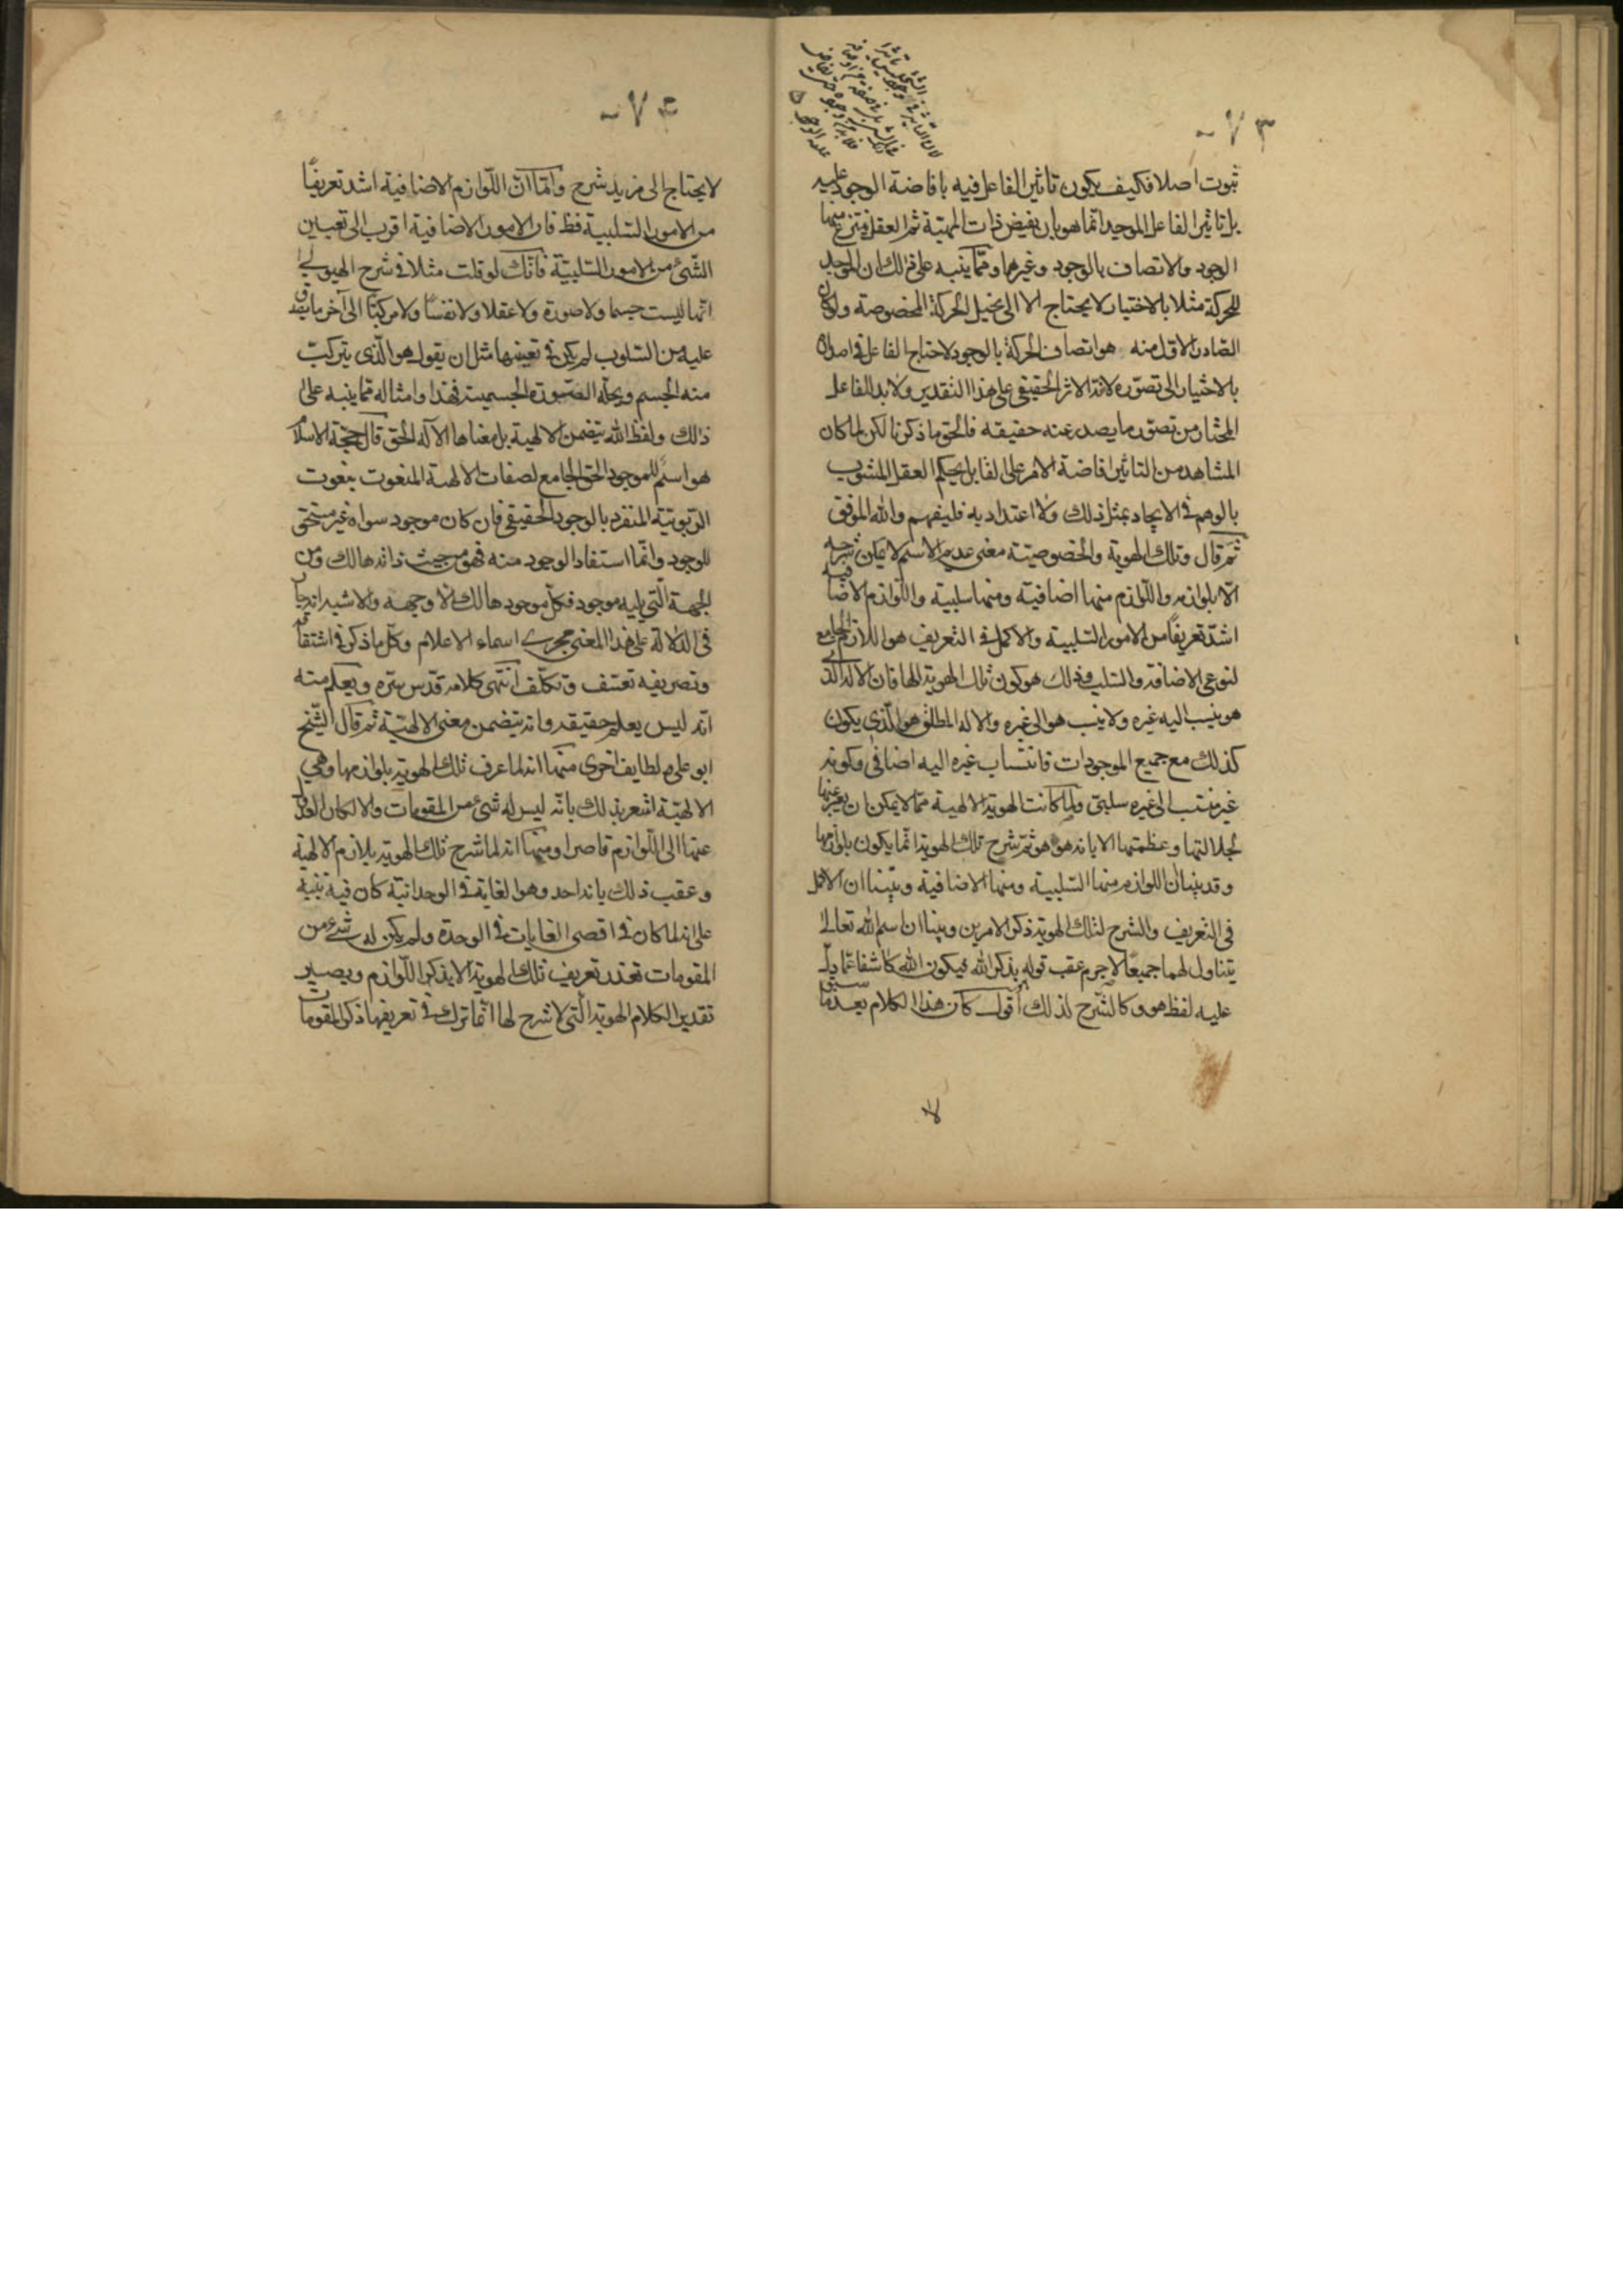 ٧٣
ثبوت اصلا فكيف يكون تاثير الفاعل فيه بافاضة الوجود عليه
بل تاثير الفاعل الموجد انما هو بان يفيض ذات المهيّة ثم العقل ينتزع منها
الوجود والاتصاف بالوجود وغيرهما وممّا ينبه على ذلك ان الموجد
للحركة مثلا بالاختيار لا يحتاج الا الى تخيل الحركة المخصوصة ولو كان
الصّادر الاوّل منه هو اتصاف الحركة بالوجود لاحتاج الفاعل في اصداره
بالاختيار الى تصوّره لانه الاثر الحقيقي على هذا التقدير ولا بد للفاعل
المختار من تصوّر ما يصدر عنه حقيقة فالحق ما ذكرنا لكن لما كان
المشاهد من التاثير افاضة الامر على القابل يحكم العقل المشوب
بالوهم في الايجاد بمثل ذلك ولا اعتداد به فليفهم والله الموفق
ثمّ قال وتلك الهوية والخصوصيّة معنى عديم الاسم لا يمكن شرحه
الّا بلوازمه واللّوازم منها اضافيّة ومنها سلبية واللّوازم الاضافية
اشدّ تعريفًا من الامور السّلبية والاكمل في التعريف هو اللازم الجامع
لنوعى الاضافة والسّلب وذلك هو كون تلك الهوية الها فان الاله الذى
هو ينسب اليه غيره ولا ينسب هو الى غيره والاله المطلق هو الّذي يكون
كذلك مع جميع الموجودات فانتساب غيره اليه اضافي وكونه
غير منتسب الى غيره سلبىّ ولمّا كانت الهوية الالهية ممّا لا يمكن ان يعبر عنها
لجلالتها وعظمتها الا بانه هو هو ثمّ شرح تلك الهوية انما يكون بلوازمها
وقد بيّنا ان اللوازم منها السّلبية ومنها الاضافية وبيّنا ان الاكمل
في التعريف والشرح لتلك الهوية ذكر الامرين وبيّنا ان اسم الله تعالى
يتناول لهما جميعًا لا جرم عقب قوله هو بذكر الله ليكون الله كاشفا عمّا دلّ
عليه لفظ هو وكالشّرح لذلك أقول كأن هذا الكلام بعد ما سبق
لا
٧٤
لا يحتاج الى مزيد شرح وامّا انّ اللّوازم الاضافية اشد تعريفًا
من الامور السّلبية فظ فان الامور الاضافية اقرب الى تعيين
الشّئ من الامور السّلبيّة فانّك لو قلت مثلا في شرح الهيولى
انّها ليست جسما ولا صورة ولا عقلا ولا نفسًا ولا مركبًا الى آخر ما يقدر
عليه من السّلوب لم يكن في تعيينها مثل ان يقول هو الّذى يتركب
منه الجسم ويحلّه الصّورة الجسمية فهذا وامثاله ممّا ينبه على
ذلك ولفظ الله يتضمن الالهية بل معناها الآله الحق قال حجّة الاسلام
هو اسم للموجود الحق الجامع لصفات الالهية المنعوت بنعوت
الرّبوبيّة المتفرد بالوجود الحقيقي فان كان موجود سواه غير مستحق
للوجود وانّما استفاد الوجود منه فهو من حيث ذاته هالك ومن
الجهة الّتي يليه موجود فكلّ موجود هالك الّا وجهه والاشبه انه جار
في الدّلالة على هذا المعنى مجرى اسماء الاعلام وكلّ ما ذكر في اشتقاقه
وتصريفه تعسّف وتكلّف انتهى كلامه قدّس سرّه ويعلم منه
انّه ليس يعلم حقيقة وانه يتضمن معنى الالهيّة ثمّ قال الشّيخ
ابو على م لطايف اخرى منها انه لما عرف تلك الهوية بلوازمها وهي
الالهيّة اشعر بذلك بانّه ليس له شئ من المقومات والا لكان العدول
عنها الى اللّوازم قاصرا ومنها انه لما شرح تلك الهوية بلازم الالهية
وعقب ذلك بانه احد وهو الغاية في الوحدانيّة كان فيه تنبيه
على انه لما كان في اقصى الغايات في الوحدة ولم يكن له شئ من
المقومات تعذر تعريف تلك الهوية الا بذكر اللّوازم ويصير
تقدير الكلام الهوية الّتي لا شرح لها انّما ترك في تعريفها ذكر المقومات